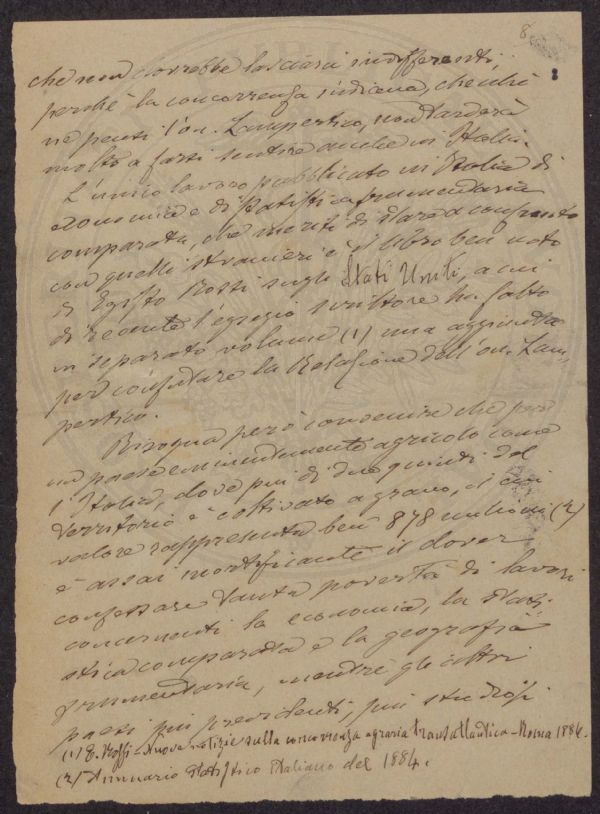 8
che non dovrebbe lasciarci indifferenti,
perchè la concorrenza indiana, checchè
ne pensi l'on. Lampertico, non tarderà
molto a farsi sentire anche in Italia.
L'unico lavoro pubblicato in Italia di
economia e di statistica frumentaria
comparata, che meriti di stare a confronto
con quelli stranieri è il libro ben noto
di Egisto Rossi sugli Stati Uniti, a cui
di recente l'egregio scrittore ha fatto
in separato volume (1) una aggiunta
per confutare la Relazione dell'on. Lam-
pertico.
Bisogna però convenire che per
un paese eminentemente agricolo come
l'Italia, dove più di due quinti del
territorio è coltivato a grano, il cui
valore rappresenta ben 878 milioni (2)
è assai mortificante il dover
confessare tanta povertà di lavori
concernenti la economia, la stati-
stica comparata e la geografia
frumentaria, mentre gli altri
paesi più previdenti, più studiosi
(1) E. Rossi - Nuove notizie sulla concorrenza agraria transatlantica - Roma 1884.
(2) Annuario Statistico Italiano del 1884.